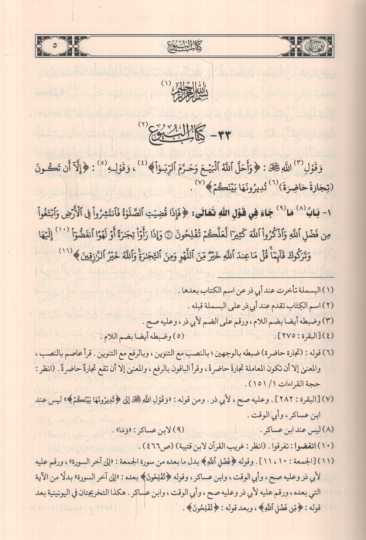 ٥
كتاب البيوع
بسم الله الرحمن الرحيم (١)
٣٣- كتاب البيوع (٢)
وَقَوْلِ (٣) اللهِ ﷺ: ﴿وَأَحَلَّ اللَّهُ الْبَيْعَ وَحَرَّمَ الرِّبَوٰا﴾ (٤)، وَقَوْلِهِ (٥): ﴿إِلَّا أَن تَكُونَ
تِجَارَةً حَاضِرَةً (٦) تُدِيرُونَهَا بَيْنَكُمْ﴾ (٧).
١- بَابُ (٨) مَا (٩) جَاءَ فِي قَوْلِ اللهِ تَعَالَى: ﴿فَإِذَا قُضِيَتِ الصَّلَوٰةُ فَانتَشِرُوا فِي الْأَرْضِ وَابْتَغُوا
مِن فَضْلِ اللَّهِ وَاذْكُرُوا اللَّهَ كَثِيرًا لَّعَلَّكُمْ تُفْلِحُونَ ۝ وَإِذَا رَأَوْا تِجَٰرَةً أَوْ لَهْوًا انفَضُّوا (١٠) إِلَيْهَا
وَتَرَكُوكَ قَائِمًا قُلْ مَا عِندَ اللَّهِ خَيْرٌ مِّنَ اللَّهْوِ وَمِنَ التِّجَٰرَةِ وَاللَّهُ خَيْرُ الرَّٰزِقِينَ﴾ (١١)
(١) البسملة تأخرت عند أبي ذر عن اسم الكتاب بعدها.
(٢) اسم الكتاب تقدم عند أبي ذر على البسملة قبله.
(٣) وضبطه أيضا بضم اللام، ورقم على الضم لأبي ذر، وعليه صح.
(٤) [البقرة: ٢٧٥]. (٥) وضبطه أيضا بضم اللام.
(٦) قوله: (تجارة حاضرة) ضبطه بالوجهين: بالنصب مع التنوين، وبالرفع مع التنوين. قرأ عاصم بالنصب،
والمعنى إلا أن تكون المعاملة تجارة حاضرة، وقرأ الباقون بالرفع، والمعنى إلا أن تقع تجارةٌ حاضرةٌ. (انظر:
حجة القراءات ١/١٥١).
(٧) [البقرة: ٢٨٢]. وعليه صح، لأبي ذر. ومن قوله: «وَقَوْلِ اللهِ إلى ﴿تُدِيرُونَهَا بَيْنَكُمْ﴾» ليس عند
ابن عساكر، وأبي الوقت.
(٨) ليس عند ابن عساكر. (٩) لابن عساكر: «وَمَا».
(١٠) انفضوا: تفرقوا. (انظر: غريب القرآن لابن قتيبة) (ص٤٦٦).
(١١) [الجمعة: ١٠، ١١]. وقوله ﴿فَضْلِ اللَّهِ﴾ بدل ما بعده من سورة الجمعة: «إلى آخر السورة»، ورقم عليه
لأبي ذر وعليه صح، وأبي الوقت، وابن عساكر، وقوله ﴿تُفْلِحُونَ﴾ بعده: «إلى آخر السورة» بدلًا من الآية
التي بعده، ورقم عليه لأبي ذر وعليه صح، وأبي الوقت، وابن عساكر. هكذا التخريجتان في اليونينية بعد
قوله: ﴿مِن فَضْلِ اللَّهِ﴾، وبعد قوله: ﴿تُفْلِحُونَ﴾.